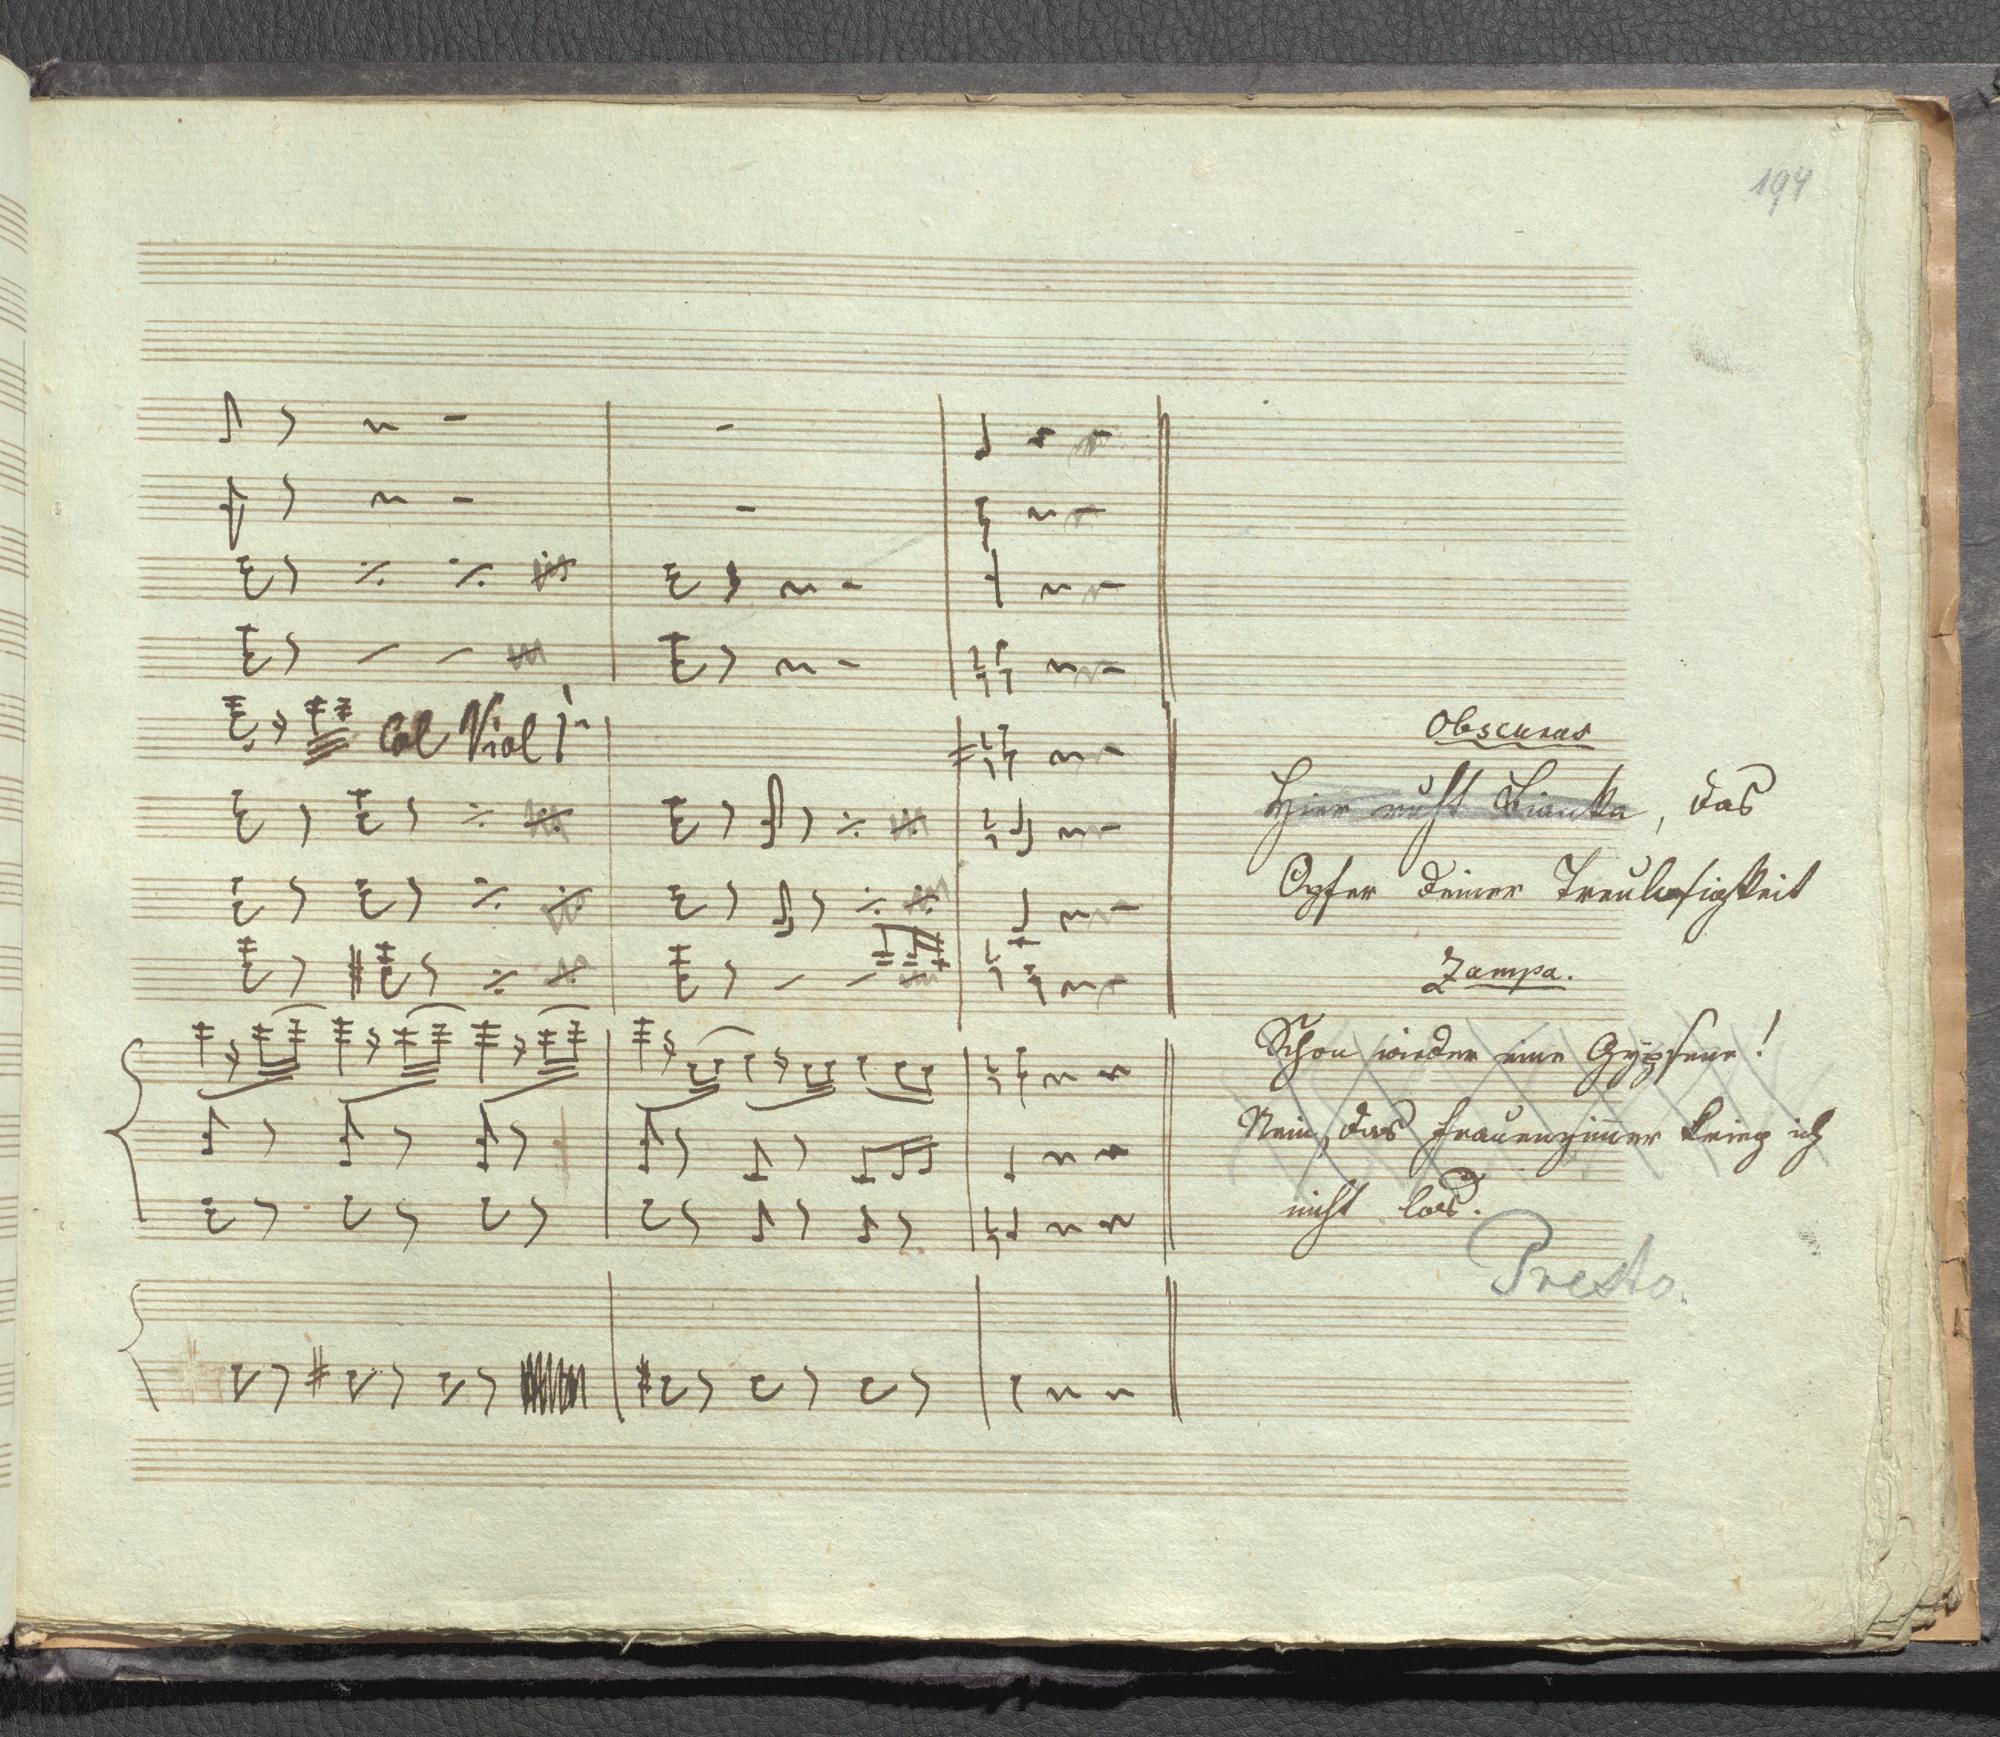 194
Col Viol 1º
Obscuras
Hier ruht Bianka, das
Opfer deiner Treulosigkeit
Zampa.
Schon wieder eine Gypsene!
Nein, das Frauenzimmer krieg ich
nicht los.
Presto.